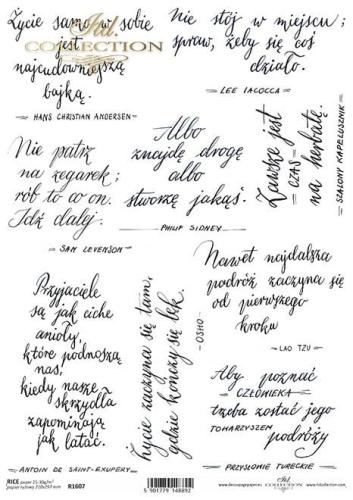 Życie samo w sobie
jest
najcudowniejszą
bajką.
- HANS CHRISTIAN ANDERSEN -
itd.
COLLECTION
Nie stój w miejscu;
spraw, żeby się coś
działo.
- LEE IACOCCA -
Nie patrz
na zegarek;
rób to co on.
Idź dalej.
- SAM LEVENSON -
Albo
znajdę drogę
albo
stworzę jakąś.
- PHILIP SIDNEY -
Zawsze jest
- CZAS -
na herbatę.
- SZALONY KAPELUSZNIK -
Przyjaciele
są jak ciche
anioły,
które podnoszą
nas,
kiedy nasze
skrzydła
zapominają
jak latać.
- ANTOIN DE SAINT-EXUPERY -
Życie zaczyna się tam,
gdzie kończy się lęk.
- OSHO -
Nawet najdalsza
podróż zaczyna się
od pierwszego
kroku
- LAO TZU -
Aby poznać
CZŁOWIEKA
trzeba zostać jego
TOWARZYSZEM
podróży
- PRZYSŁOWIE TURECKIE -
RICE paper 25-30g/m²
papier ryżowy 210x290 mm
R1607
5 901779 148892
www.decoupagepaper.eu
www.itdcollection.com